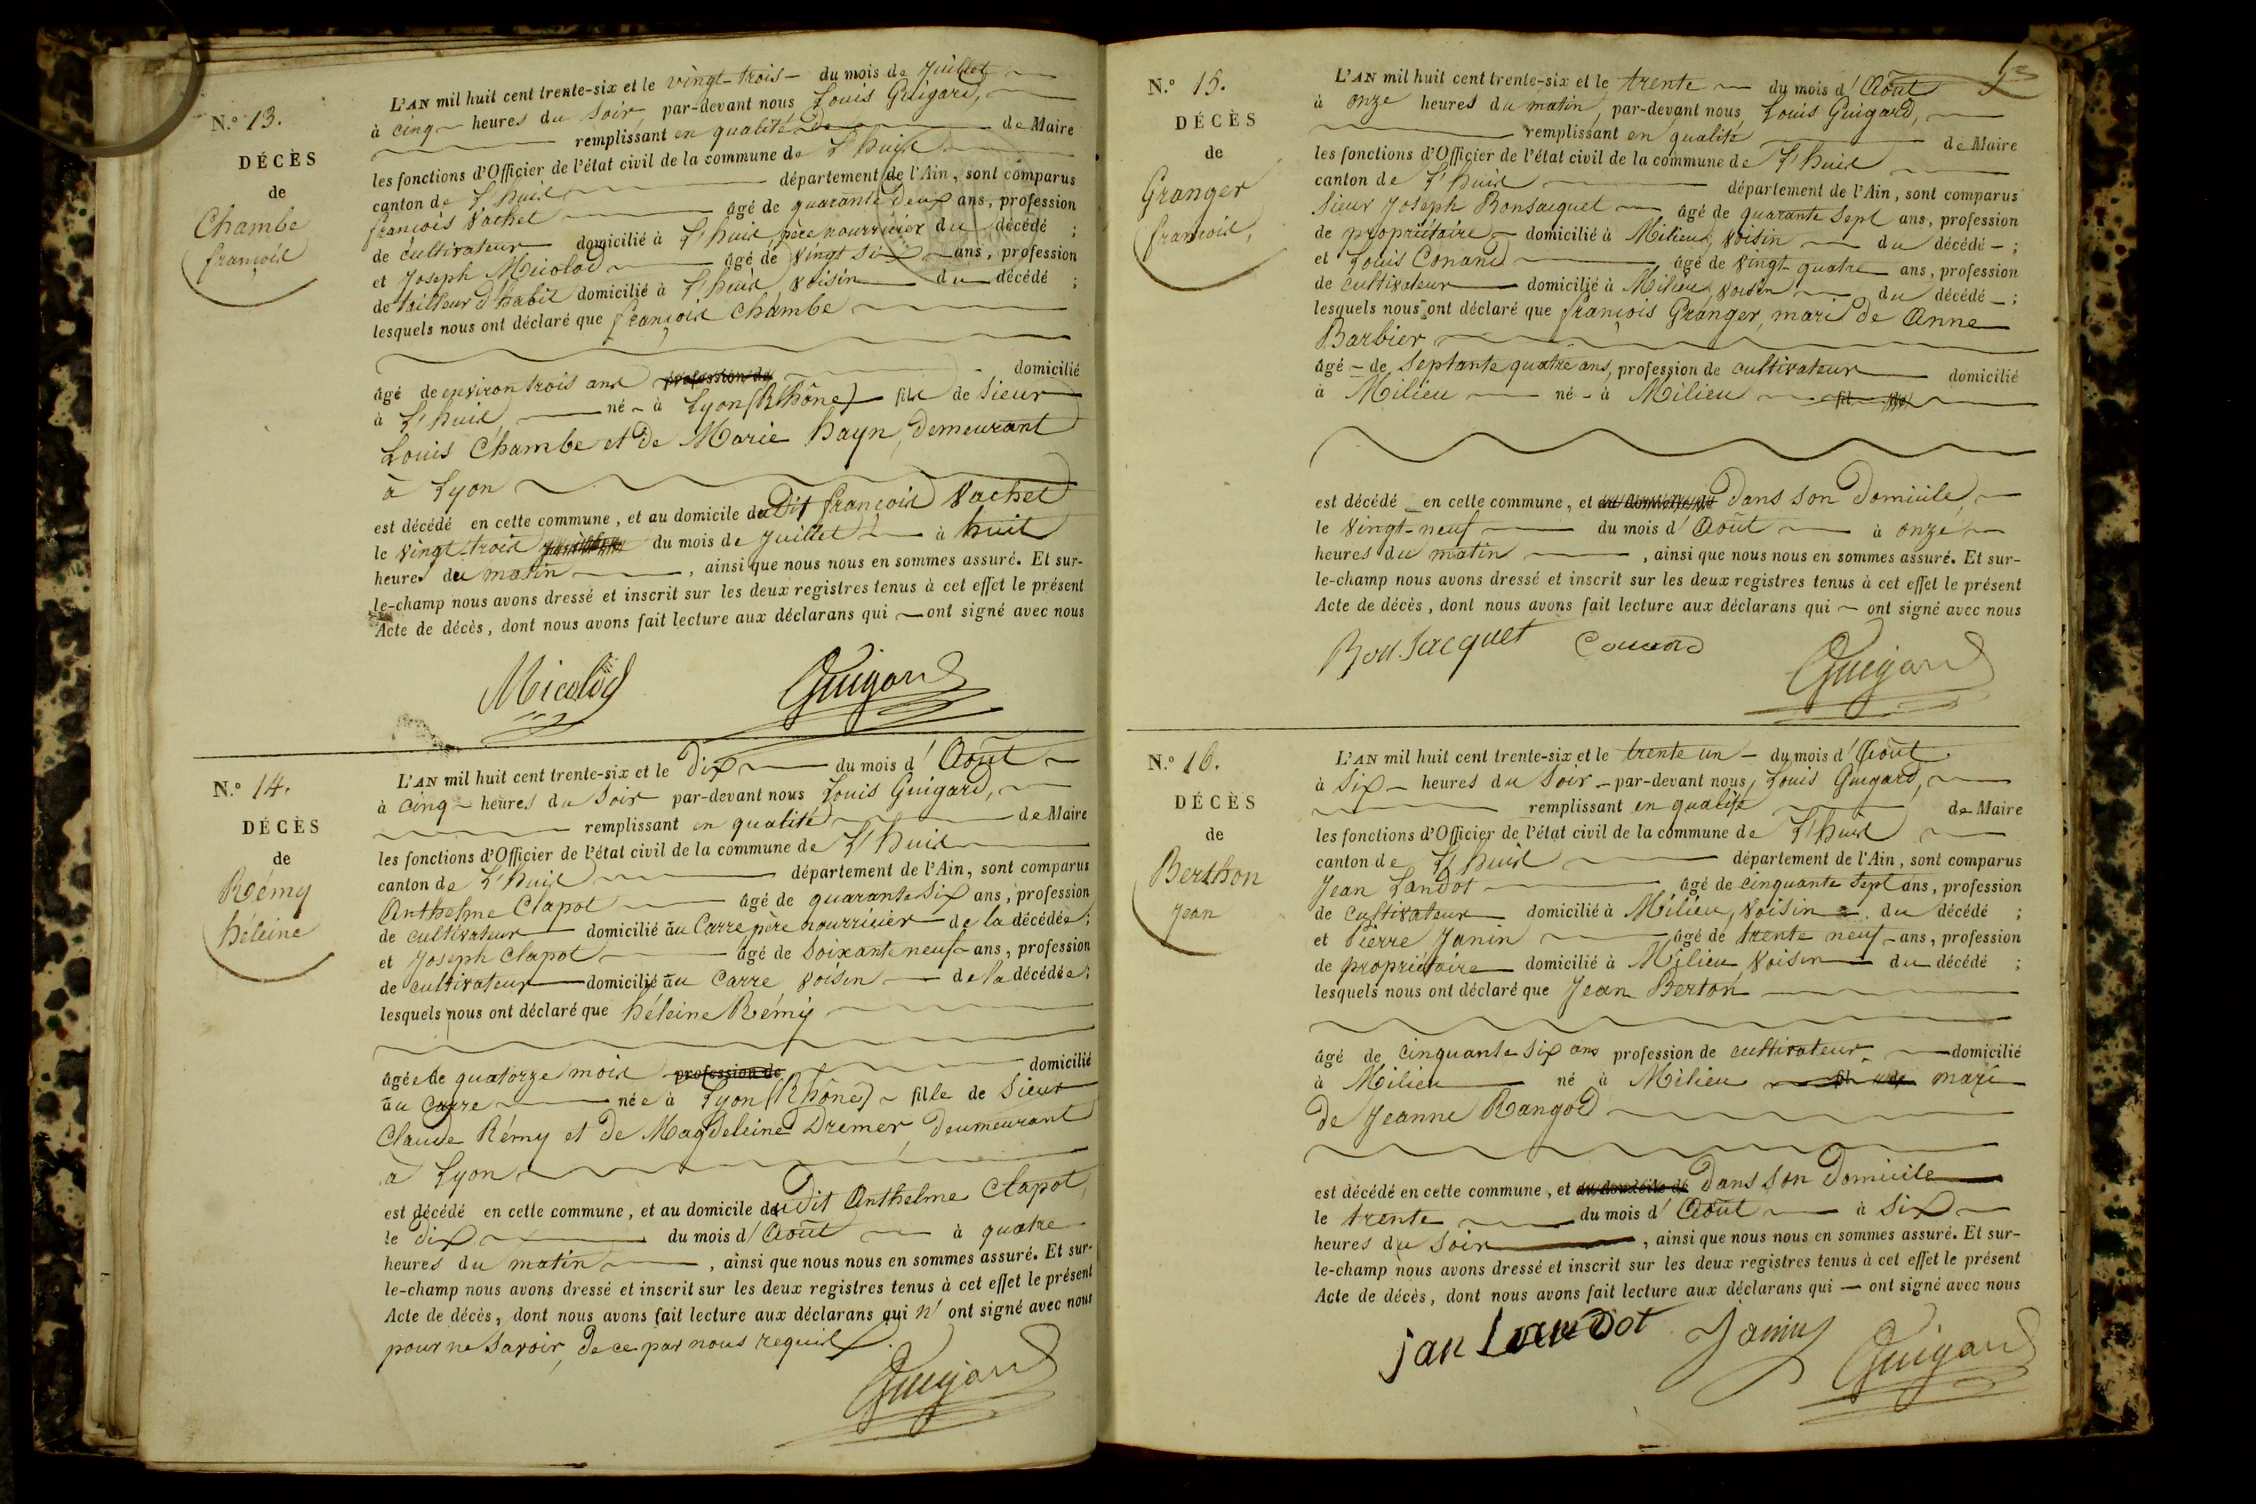 N.º 13.
DÉCÈS
de
Chambe
françois
L'AN mil huit cent trente-six et le vingt-trois du mois de Juillet
à cinq heures du Soir par-devant nous Louis Guigard,
remplissant en qualité de de Maire
les fonctions d'Officier de l'état civil de la commune de L'huis
canton de L'huis département de l'Ain, sont comparus
françois Vachet âgé de quarante deux ans, profession
de cultivateur domicilié à L'huis, père nourricier du décédé ;
et Joseph Micolod âgé de vingt six ans, profession
de tailleur d'habit domicilié à L'huis, voisin du décédé ;
lesquels nous ont déclaré que françois Chambe
âgé de environ trois ans profession de domicilié
à L'huis, né à Lyon (Rhône) fils de Sieur
Louis Chambe et de Marie hayn, demeurant
à Lyon
est décédé en cette commune, et au domicile dudit françois Vachet
le vingt-trois du mois de Juillet à huit
heures du matin, ainsi que nous nous en sommes assuré. Et sur-
le-champ nous avons dressé et inscrit sur les deux registres tenus à cet effet le présent
Acte de décès, dont nous avons fait lecture aux déclarans qui ont signé avec nous
Micolod Guigard
N.º 14.
DÉCÈS
de
Rémy
héleine
L'AN mil huit cent trente-six et le dix du mois d'Août
à cinq heures du Soir par-devant nous Louis Guigard,
remplissant en qualité de Maire
les fonctions d'Officier de l'état civil de la commune de L'huis
canton de L'huis département de l'Ain, sont comparus
Anthelme Clapot âgé de quarante six ans, profession
de cultivateur domicilié au Carre père nourricier de la décédée ;
et Joseph Clapot âgé de soixante neuf ans, profession
de cultivateur domicilié au Carre voisin de la décédée ;
lesquels nous ont déclaré que héleine Rémy
âgée de quatorze mois profession de domicilié
au Carre née à Lyon (Rhône) fille de Sieur
Claude Rémy et de Magdeleine Dremer, deumeurant
à Lyon
est décédé en cette commune, et au domicile dudit Anthelme Clapot,
le dix du mois d'Août à quatre
heures du matin, ainsi que nous nous en sommes assuré. Et sur-
le-champ nous avons dressé et inscrit sur les deux registres tenus à cet effet le présent
Acte de décès, dont nous avons fait lecture aux déclarans qui n'ont signé avec nous
pour ne savoir, de ce par nous requis.
Guigard
N.º 15.
DÉCÈS
de
Granger
françois,
L'AN mil huit cent trente-six et le trente du mois d'Août
à onze heures du matin, par-devant nous, Louis Guigard,
remplissant en qualité de Maire
les fonctions d'Officier de l'état civil de la commune de L'huis
canton de L'huis département de l'Ain, sont comparus
Sieur Joseph Bonsacquet âgé de quarante sept ans, profession
de propriétaire domicilié à Milieu, voisin du décédé ;
et Louis Conand âgé de vingt-quatre ans, profession
de cultivateur domicilié à Milieu, voisin du décédé ;
lesquels nous ont déclaré que françois Granger, mari de Anne
Barbier
âgé de septante quatre ans, profession de cultivateur domicilié
à Milieu né à Milieu fil
est décédé en cette commune, et au domicile de dans son domicile,
le vingt-neuf du mois d'Août à onze
heures du matin, ainsi que nous nous en sommes assuré. Et sur-
le-champ nous avons dressé et inscrit sur les deux registres tenus à cet effet le présent
Acte de décès, dont nous avons fait lecture aux déclarans qui ont signé avec nous
Bonsacquet Conand Guigard
N.º 16.
DÉCÈS
de
Berthon
Jean
L'AN mil huit cent trente-six et le trente un du mois d'Août
à six heures du Soir par-devant nous, Louis Guigard,
remplissant en qualité de Maire
les fonctions d'Officier de l'état civil de la commune de L'huis
canton de L'huis département de l'Ain, sont comparus
Jean Landot âgé de cinquante sept ans, profession
de cultivateur domicilié à Milieu, voisin du décédé ;
et Pierre Janin âgé de trente neuf ans, profession
de propriétaire domicilié à Milieu voisin du décédé ;
lesquels nous ont déclaré que Jean Berton
âgé de cinquante six ans profession de cultivateur domicilié
à Milieu né à Milieu fil mari
de Jeanne Rangod
est décédé en cette commune, et au domicile de dans son domicile
le trente du mois d'Août à six
heures du soir, ainsi que nous nous en sommes assuré. Et sur-
le-champ nous avons dressé et inscrit sur les deux registres tenus à cet effet le présent
Acte de décès, dont nous avons fait lecture aux déclarans qui ont signé avec nous
jan Landot Janin Guigard